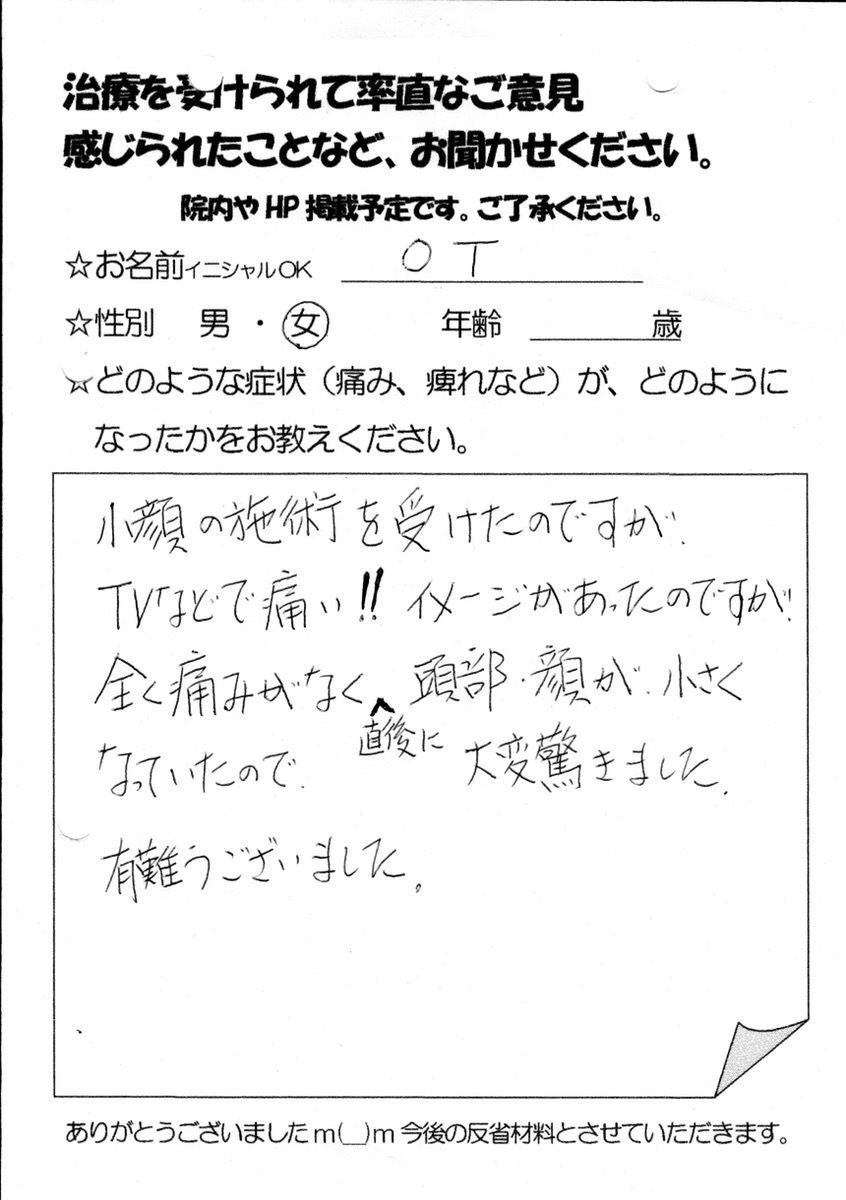 治療を受けられて率直なご意見
感じられたことなど、お聞かせください。
院内やHP掲載予定です。ご了承ください。
☆お名前イニシャルOK OT
☆性別 男・女 年齢 歳
☆どのような症状（痛み、痺れなど）が、どのように
なったかをお教えください。
小顔の施術を受けたのですが、
TVなどで痛い!! イメージがあったのですが、
全く痛みがなく 頭部・顔が、小さく
直後に
なっていたので、大変驚きました。
有難うございました。
ありがとうございましたm(__)m今後の反省材料とさせていただきます。